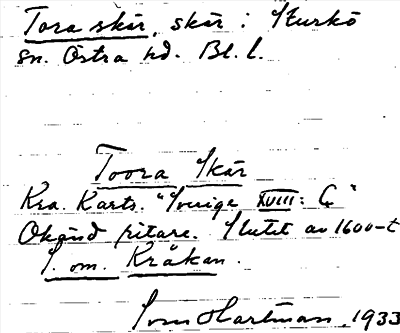 Tora skär, skär i Sturkö
sn. Östra hd. Bl. l.
Toora Skär
Kra. Karts. "Sverige XVIII: C"
Okänd ritare. Slutet av 1600-t
S. om. Kråkan.
Hartman 1933